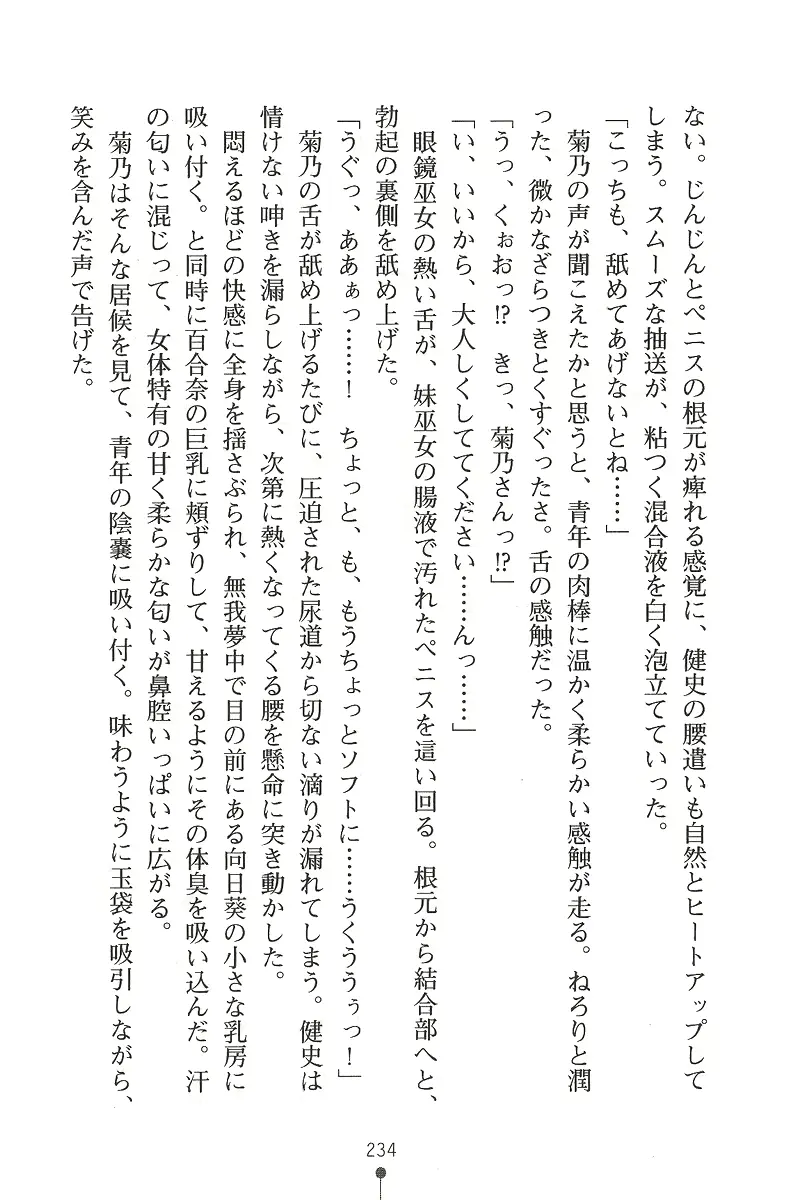 ない。じんじんとペニスの根元が痺れる感覚に、健史の腰遣いも自然とヒートアップして
しまう。スムーズな抽送が、粘つく混合液を白く泡立てていった。
「こっちも、舐めてあげないとね……」
菊乃の声が聞こえたかと思うと、青年の肉棒に温かく柔らかい感触が走る。ねろりと潤
った、微かなざらつきとくすぐったさ。舌の感触だった。
「うっ、くぉおっ!?　きっ、菊乃さんっ!?」
「い、いいから、大人しくしててください……んっ……」
眼鏡巫女の熱い舌が、妹巫女の腸液で汚れたペニスを這い回る。根元から結合部へと、
勃起の裏側を舐め上げた。
「うぐっ、ああぁっ……！　ちょっと、も、もうちょっとソフトに……うくううぅっ！」
菊乃の舌が舐め上げるたびに、圧迫された尿道から切ない滴りが漏れてしまう。健史は
情けない呻きを漏らしながら、次第に熱くなってくる腰を懸命に突き動かした。
悶えるほどの快感に全身を揺さぶられ、無我夢中で目の前にある向日葵の小さな乳房に
吸い付く。と同時に百合奈の巨乳に頬ずりして、甘えるようにその体臭を吸い込んだ。汗
の匂いに混じって、女体特有の甘く柔らかな匂いが鼻腔いっぱいに広がる。
菊乃はそんな居候を見て、青年の陰嚢に吸い付く。味わうように玉袋を吸引しながら、
笑みを含んだ声で告げた。
234